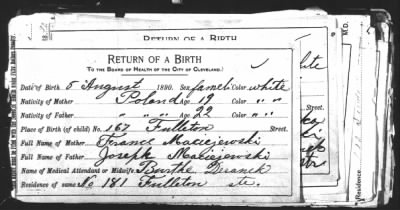 RETURN OF A BIRTH
RETURN OF A BIRTH
TO THE BOARD OF HEALTH OF THE CITY OF CLEVELAND.
Date of Birth 5 August 1890. Sex famel Color white
Nativity of Mother Poland Age 19 Color " "
Nativity of Father " " " Age 22 Color " "
Place of Birth (of child) No. 167 Fulleton Street.
Full Name of Mother Franc Maciejewski
Full Name of Father Joseph Maciejewski
Name of Medical Attendant or Midwife
Residence of same No 181 Fulleton str.
M.D.
Street.
Residence